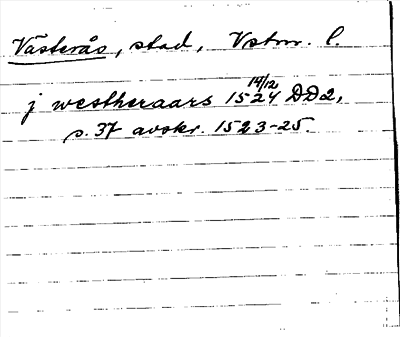 Västerås, stad, Vstm. l.
j westheraars 14/12 1524 DD2,
s. 37 avskr. 1523-25.